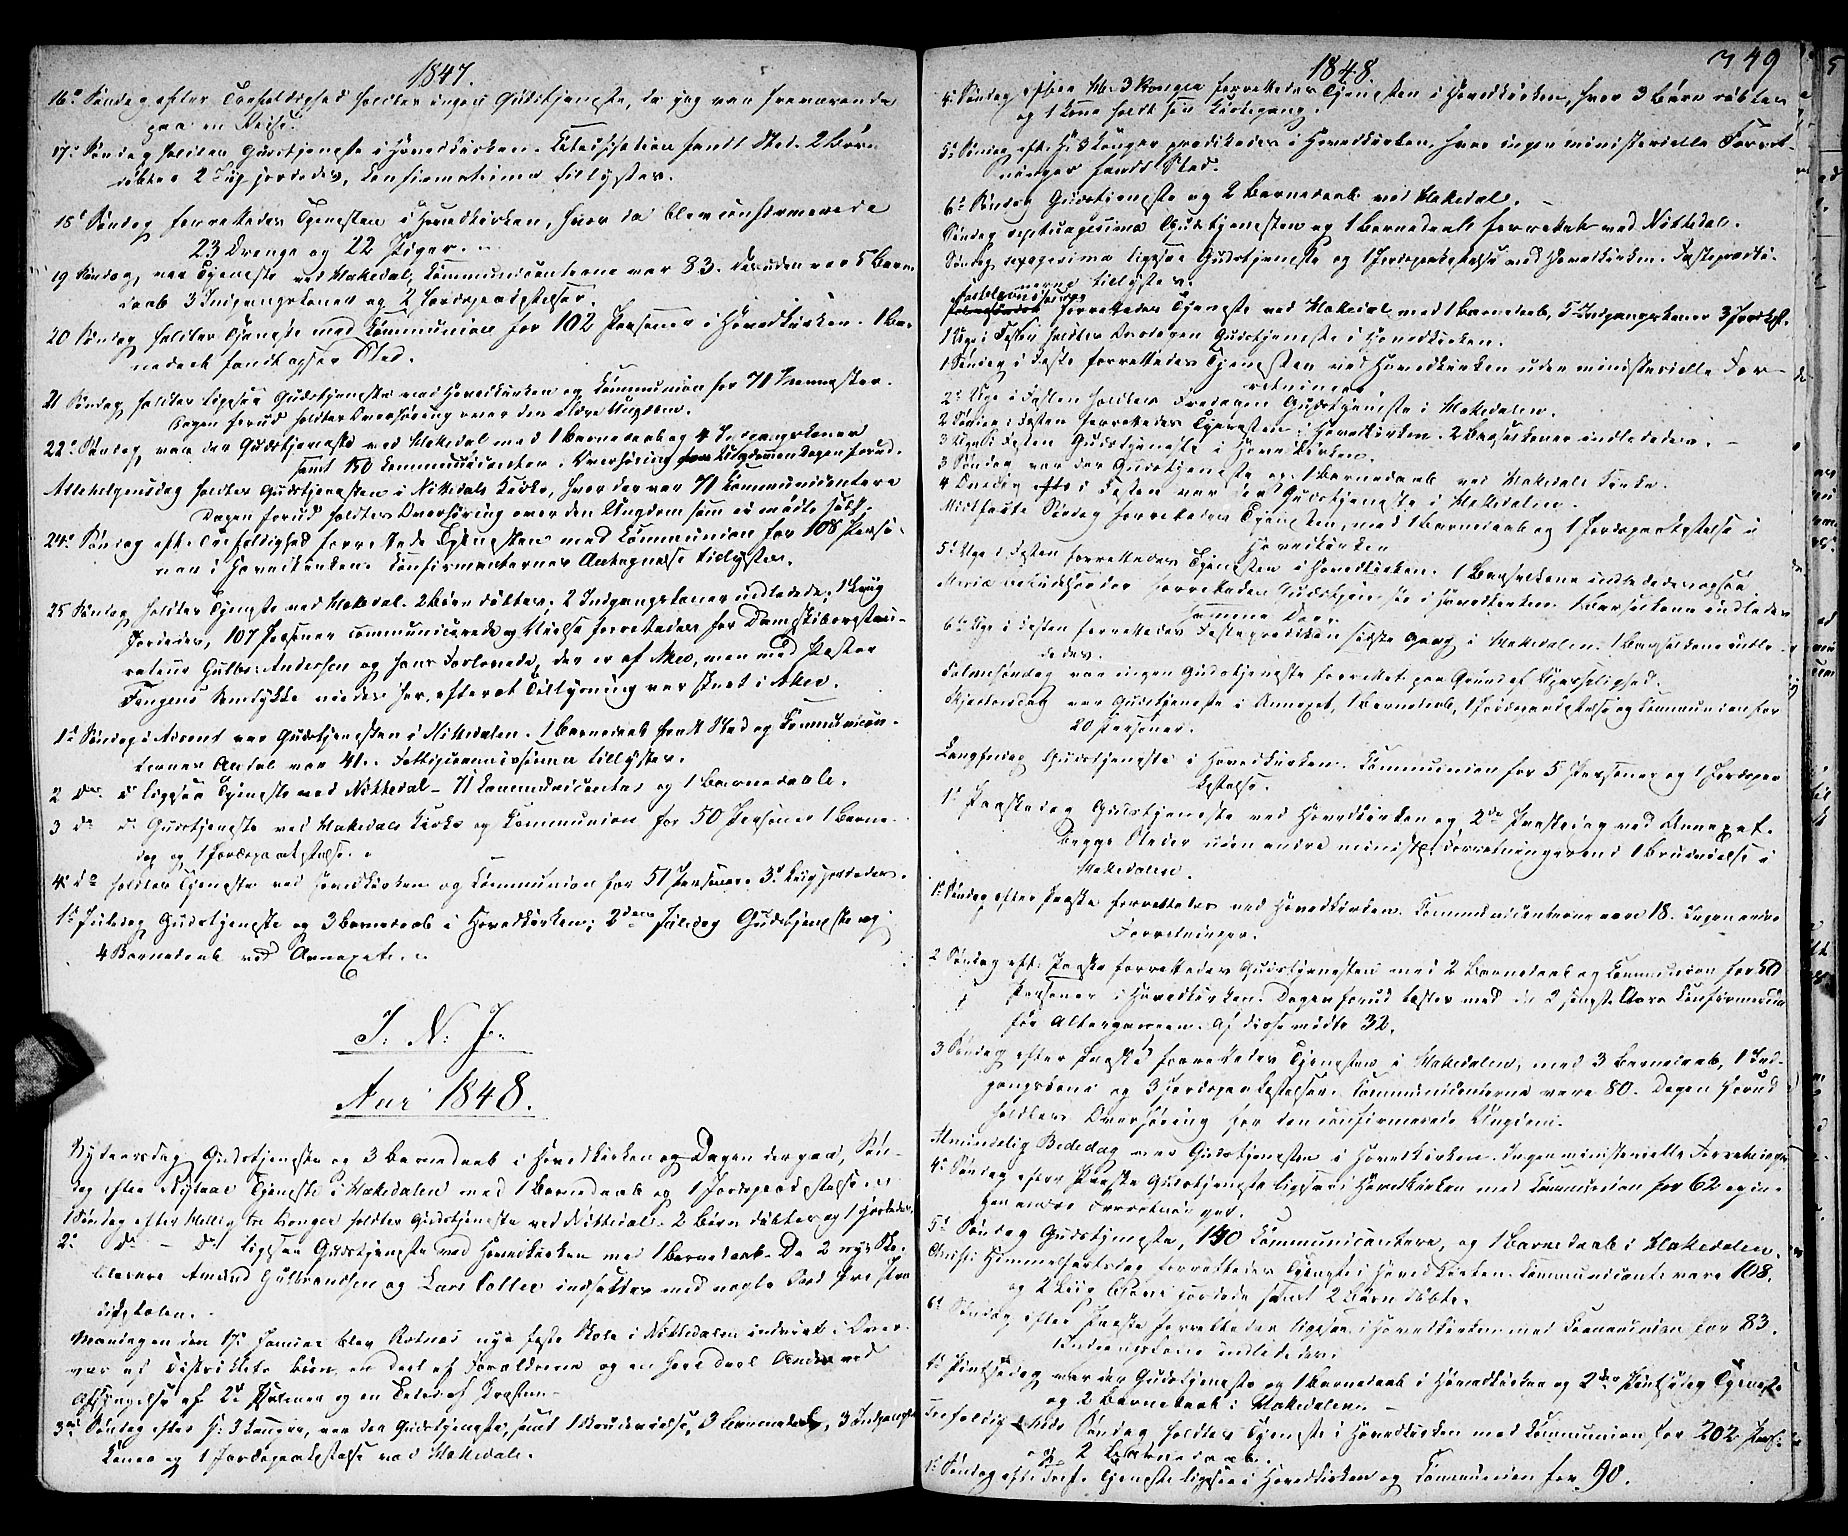 1847.
16de Søndag efter Trefoldighed holdtes ingen Gudstjeneste, da jeg var fraværende
paa en Reise.
17de Søndag holdtes Gudstjeneste i Hovedkirken. Catechisation fandt Sted. 2 Børn
døbtes 2 Liig jordedes, Confirmationen tillystes.
18de Søndag forrettedes Tjenesten i Hovedkirken, hvor da blev confirmerede
23 Drenge og 22 Piger.
19 Søndag, var Tjeneste ved Hakedal, Communicanterne var 83. Desuden var 5 Barne
daab 3 Indgangskoner og 2 Jordspaakastelser.
20 Søndag holdtes Tjeneste med Communion for 102 Personer i Hovedkirken. 1 Bar-
nedaab fandt ogsaa Sted.
21 Søndag holdtes ligesaa Gudstjeneste ved Hovedkirken og Communion for 71 Mennesker.
Dagen forud holdtes Overhøring over den ældre Ungdom.
22de Søndag var der Gudstjeneste ved Hakedal med 1 Barnedaab og 4 Indgangskoner
samt 150 Communicanter. Overhøring Ungdommen Dagen forud.
Allehelgensdag holdtes Gudstjenesten i Nittedals Kirke, hvor der var 71 Communicantere
Dagen forud holdtes Overhøring over den Ungdom som ei mødte sidst.
24de Søndag eft. Trefoldighed forrettede Tjenesten med Communion for 108 Perso-
ner i Hovedkirken. Confirmanternes Antegnelse tillystes.
25 Søndag holdtes Tjeneste ved Hakedal. 2 Børn døbtes, 2 Indgangskoner indlededes, 1 Liig
jordedes, 107 Personer communicerede og Vielse forrettedes for Dampskibsrestau-
rateur Gulbr. Andersen og hans Forlovede, der er af Aker, men med Pastor
Fangens Samtykke viedes her, efterat Tillysning var skeet i Aker.
1ste Søndag i Advent var Gudstjenesten i Nittedalen. 1 Barnedaab fandt Sted og Communican-
ternes Antal var 41. Fattigcommissionen tillystes.
2 Do do ligesaa Tjeneste ved Nittedal - 71 Communicanter og 1 Barnedaab.
3 do do Gudstjeneste ved Hakedals Kirke og Communion for 50 Personer 1 Barne-
dag og 1 Jordspaakastelse.
4de do holdtes Tjeneste ved Hovedkirken og Communion for 51 Personer. 3de Liig jordedes.
1ste Juledag Gudstjeneste og 3 Barnedaab i Hovedkirken; 2den Juledag Gudstjeneste og
4 Barnedaab ved Annexet.
I. N. J.
Aar 1848.
Nytaarsdag Gudstjeneste og 3 Barnedaab i Hovedkirken og Dagen derpaa, Søn-
dag efter Nytaar Tjeneste i Hakedalen med 1 Barnedaab og 1 Jordspaakastelse.
1 Søndag efter Hellig tre Konger holdtes Gudstjeneste ved Nittedal. 2 Børn døbtes og 1 jordedes.
2de do - do ligesaa Gudstjeneste ved Hovedkirken med 1 Barnedaab. De 2 nye Sko-
lelærere Amund Gulbrandsen og Lars Coller indsattes med nogle Ord fra Præ
dikestolen.
Mandagen den 17de Januar blev Rotnæs nye faste Skole i Nittedalen indviet i Over-
vær af Districtets Børn, en deel af Forældrene og en heel deel Andre ved
Afsyngelse af 2de Psalmer og en Tale af Præsten.
3die Søndag efter H: 3 Konger, var der Gudstjeneste, samt 1 Brudevielse, 3 Barnedaab, 3 Indgangs
Koner og 1 Jordspaakastelse ved Hakedal.
1848.
349
4de Søndag efter H. 3 Konger forrettedes Tjenesten i Hovedkirken, hvor 3 Børn døbtes
og 1 Kone holdt sin Kirkegang.
5te Søndag eft. H: 3 Konger prædikedes i Hovedkirken, hvor ingen ministerielle Forret-
ninger fandt Sted.
6te Søndag Gudstjeneste og 2 Barnedaab ved Hakedal.
Søndag septuagesima Gudstjenesten og 1 Barnedaab forrettet ved Nittedal.
Søndag sexagesima ligesaa Gudstjeneste og 1 Jordspaakastelse ved Hovedkirken. Fasteprædike-
nerne tillystes.
Fastelavnssøndag forrettedes Tjeneste ved Hakedal med 1 Barnedaab, 5 Indgangskoner 3 Jordkast.
1 Uge i Fasten holdtes Onsdagen Gudstjeneste i Hovedkirken.
1 Søndag i Faste forrettedes Tjenesten ved Hovedkirken uden ministerielle For-
retninger
2de Uge i Fasten holdtes Fredagen Gudstjeneste i Hakedalen.
2 Søndag i Fasten forrettedes Tjenesten i Hovedkirken. 2 Barselkoner indlededes.
3 Uge i Fasten Gudstjeneste i Hovedkirken.
3 Søndag var der Gudstjeneste og 1 Barnedaab ved Hakedals Kirke.
4 Onsdag i Fasten var der Gudstjeneste i Hakedalen.
Midfaste Søndag forrettedes Tjenesten, med 1 Barnedaab og 1 Jordspaakastelse i
Hovedkirken
5te Uge i Fasten forrettedes Tjenesten i Hovedkirken. 1 Barselkone indlededes ogsaa.
Mariæ Bebudelsesdag forrettedes Gudstjeneste i Hovedkirken. 1 Barselkone indledes
samme Dag.
6te Uge i Fasten forrettedes Fasteprædiken sidste Gang i Hakedalen. 1 Barselkone indle-
dedes.
Palmesøndag var ingen Gudstjeneste forrettet paa Grund af Upasselighed.
Skjærtorsdag var Gudstjeneste i Annexet, 1 Barnedaab, 1 Jordspaakastelse og Communion for
20 Personer.
Langfredag Gudstjeneste i Hovedkirken. Communion for 5 Personer og 1 Jordspaa
kastelse.
1ste Paaskedag Gudstjeneste ved Hovedkirken og 2den Paaskedag ved Annexet.
Begge Steder uden andre minist. Forretninger end 1 Brudevielse i
Hakedalen.
1ste Søndag efter Paaske forrettedes ved Hovedkirken. Communicanterne vare 18. Ingen andre
Forretninger.
2 Søndag eft. Paaske forrettedes Gudstjenesten med 2 Barnedaab og Communion for 50
Personer i Hovedkirken. Dagen forud læstes med de 2 sidste Aars Confirmerede
før Altergangen. Af disse mødte 32.
3 Søndag efter Paaske forrettedes Tjenesten i Hakedalen, med 3 Barnedaab, 1 Ind-
gangskone og 3 Jordspaakastelser. Communicanterne vare 80. Dagen forud
holdtes Overhøring for den confirmerede Ungdom.
Almindelig Bededag var Gudstjenesten i Hovedkirken. Ingen ministerielle Forretninger
4de Søndag efter Paaske Gudstjeneste ligesaa i Hovedkirken med Communion for 62 og in-
gen andre Forretninger.
5te Søndag Gudstjeneste, 140 Communicantere, og 1 Barnedaab i Hakedalen.
Christi Himmelfartsdag forrettedes Tjeneste i Hovedkirken. Communicant. vare 108.
og 2 Liig bleve jordede samt 2 Børn døbte.
6te Søndag efter Paaske forrettedes ligesaa i Hovedkirken med Communion for 83.
Indgangskone indlededes.
1ste Pintsedag var der Gudstjeneste og 1 Barnedaab i Hovedkirken og 2den Pintsedag Tjeneste
og 2 Barnedaab i Hakedalen.
Trefoldigheds Søndag holdtes Tjeneste i Hovedkirken med Communion for 202 Pers:
og 2 Barnedaab.
1ste Søndag efter Tref. Tjeneste ligesaa i Hovedkirken og Communion for 90.